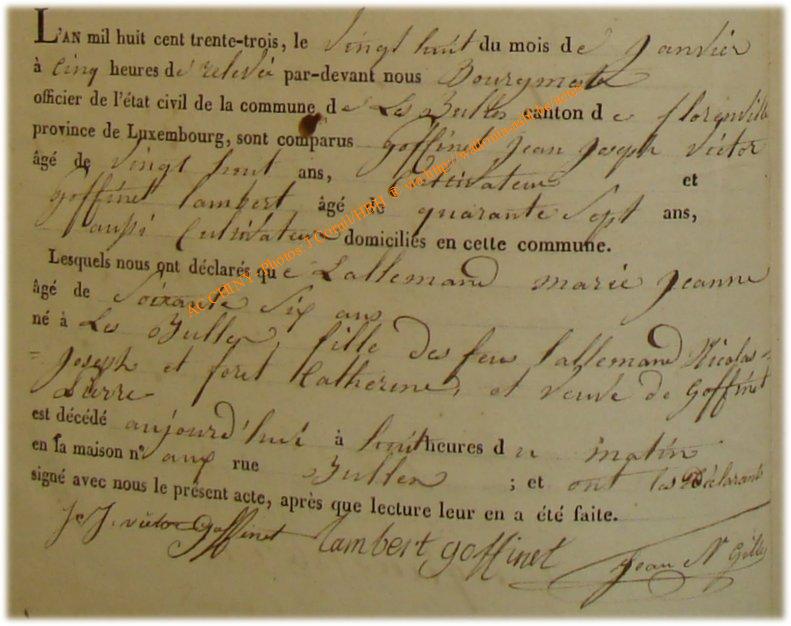 L'AN mil huit cent trente-trois, le vingt huit du mois de Janvier
à Cinq heures de relevée par-devant nous Bourgmestre
officier de l'état civil de la commune de Les Bulles canton de florenville
province de Luxembourg, sont comparus goffinet Jean Joseph victor
âgé de vingt huit ans, Cultivateur et
goffinet lambert âgé de quarante Sept ans,
aussi Cultivateur domiciliés en cette commune.
Lesquels nous ont déclarés que Lallemand marie Jeanne
âgé de Soixante Six ans
né à Les Bulles, fille des feu lallemand Nicolas =
= Joseph et foret Catherine, et veuve de Goffinet
est décédé aujourd'hui à huit heures du matin
en la maison n° aux rue Bulles ; et ont les Déclarants
signé avec nous le présent acte, après que lecture leur en a été faite.
J. J. victor Goffinet lambert goffinet Jean N Gilles
AC CHINY Photos J Cornil/HBH ®